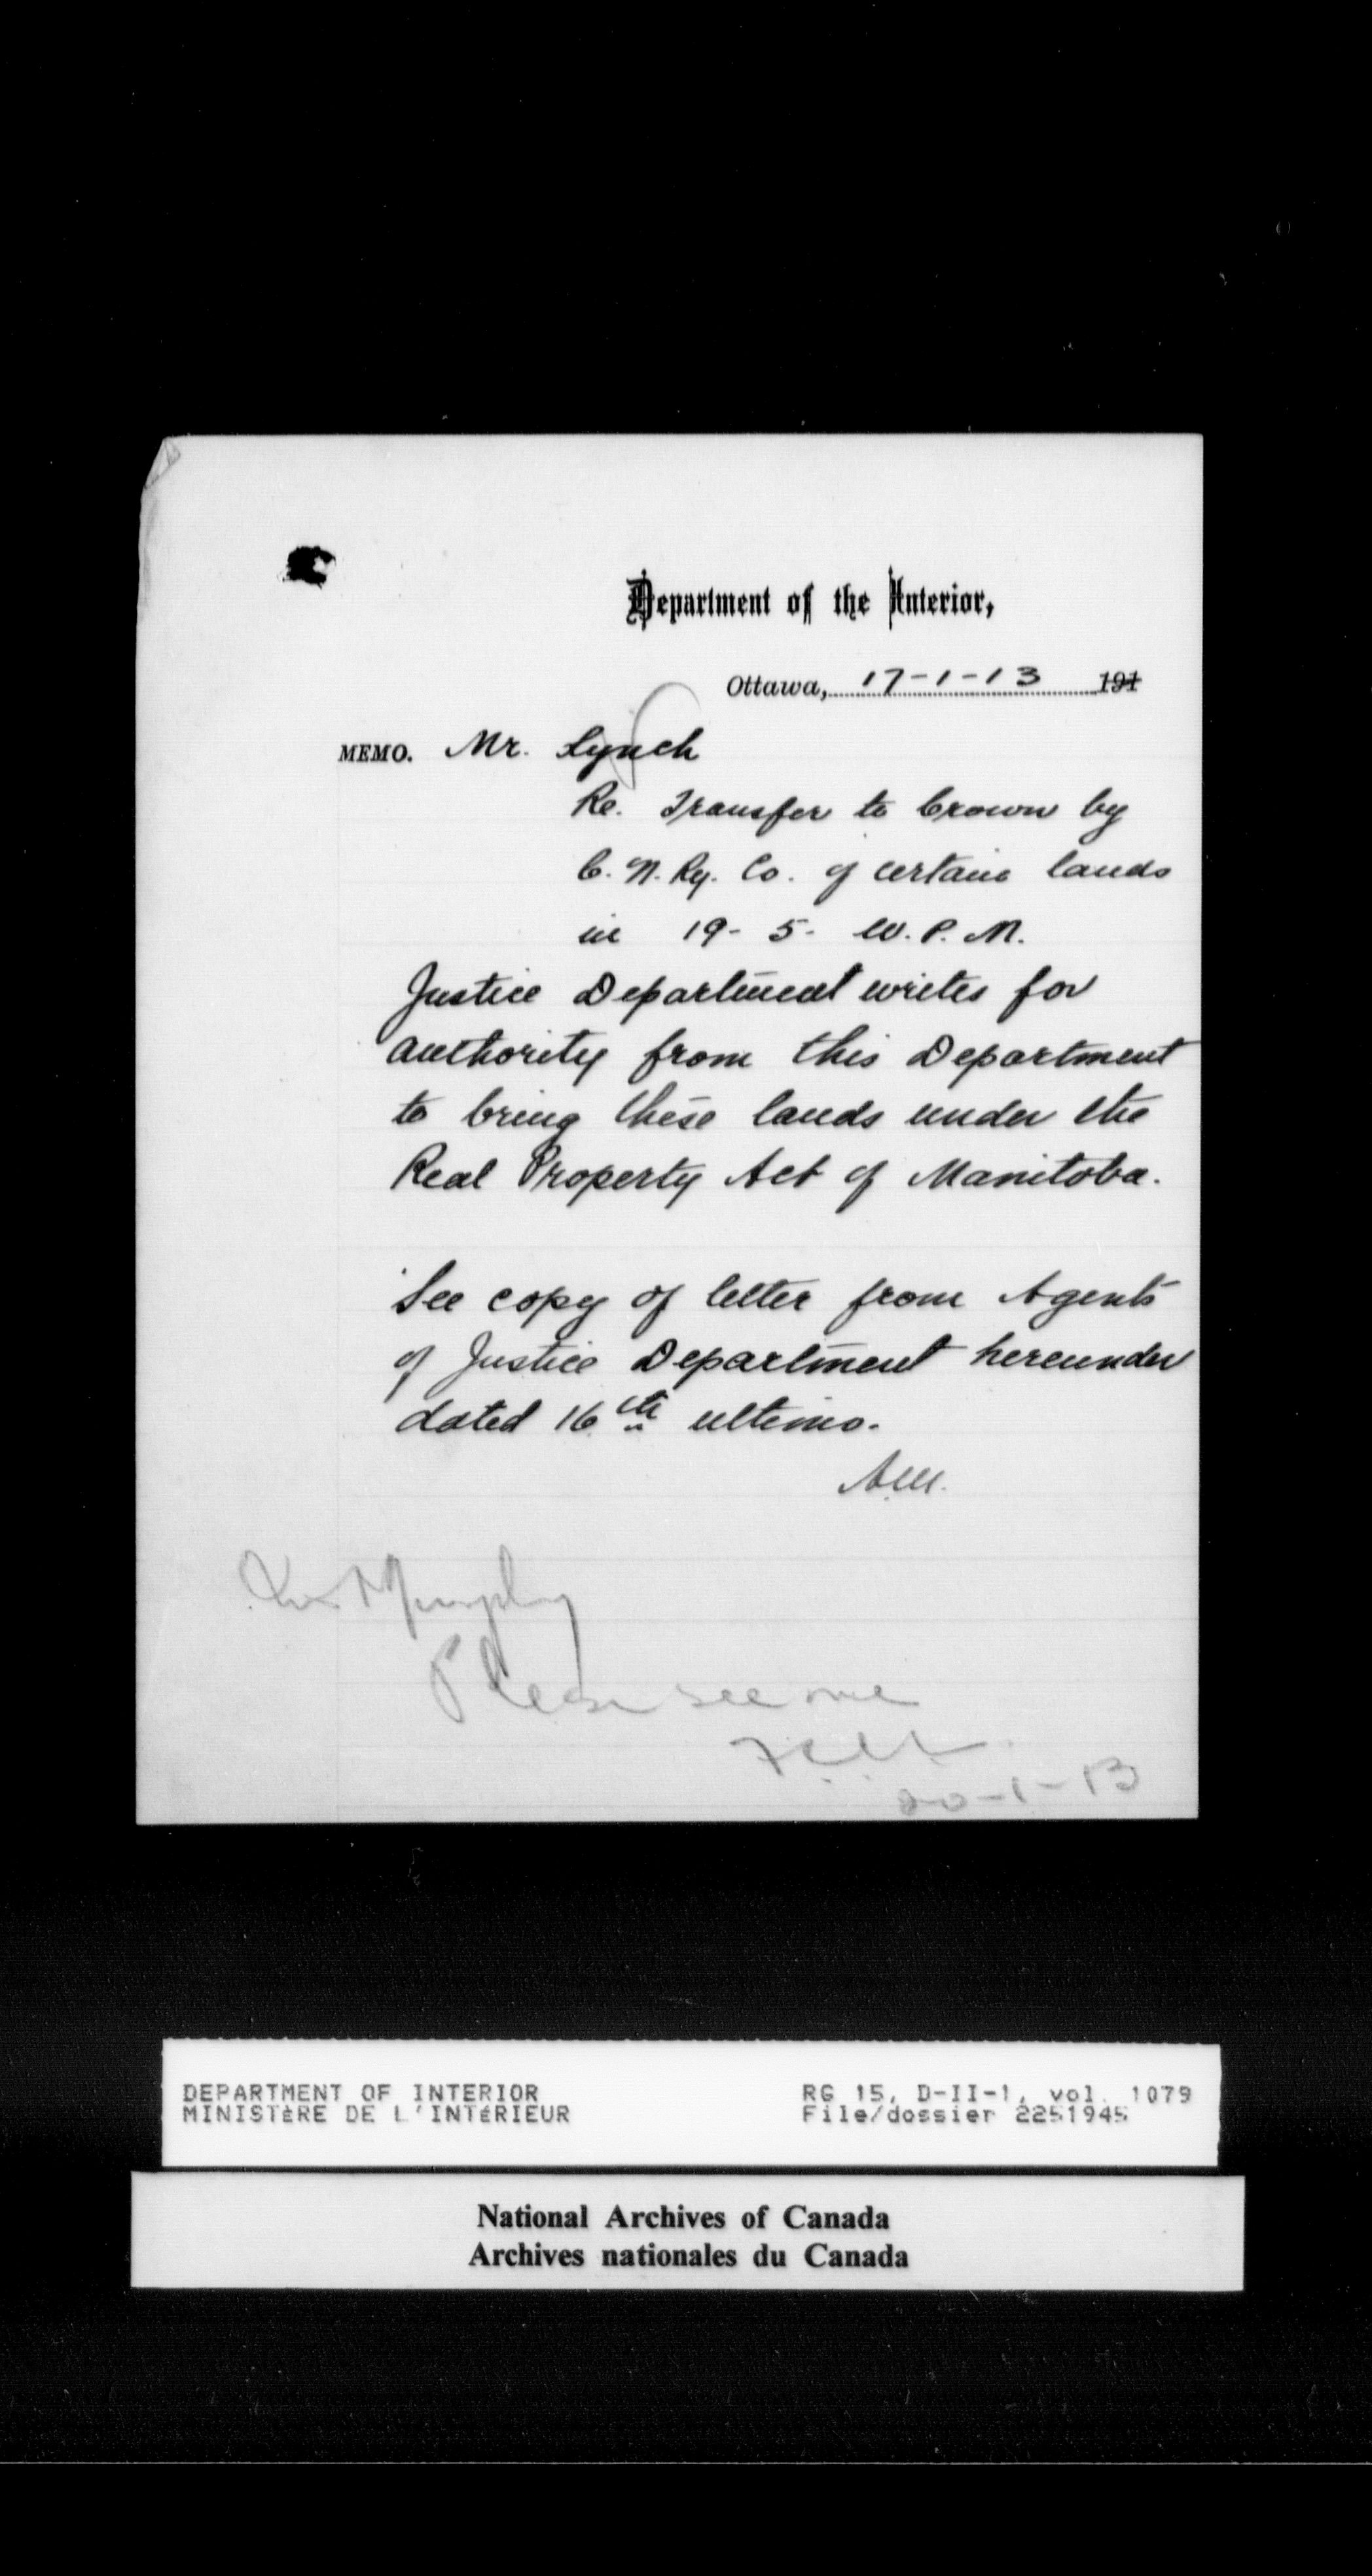 Department of the Interior,
Ottawa, 17-1-13 191
MEMO. Mr. Lynch
Re. Transfer to Crown by
C. N. Ry. Co. of certain lands
in 19- 5- W. P. M.
Justice Department writes for
authority from this Department
to bring these lands under the
Real Property Act of Manitoba.
See copy of letter from Agents
of Justice Department hereunder
dated 16th ultimo.
Murphy
Please see me
20-1-13
DEPARTMENT OF INTERIOR
MINISTÈRE DE L'INTÉRIEUR
RG 15, D-II-1, vol. 1079
File/dossier 2251945
National Archives of Canada
Archives nationales du Canada